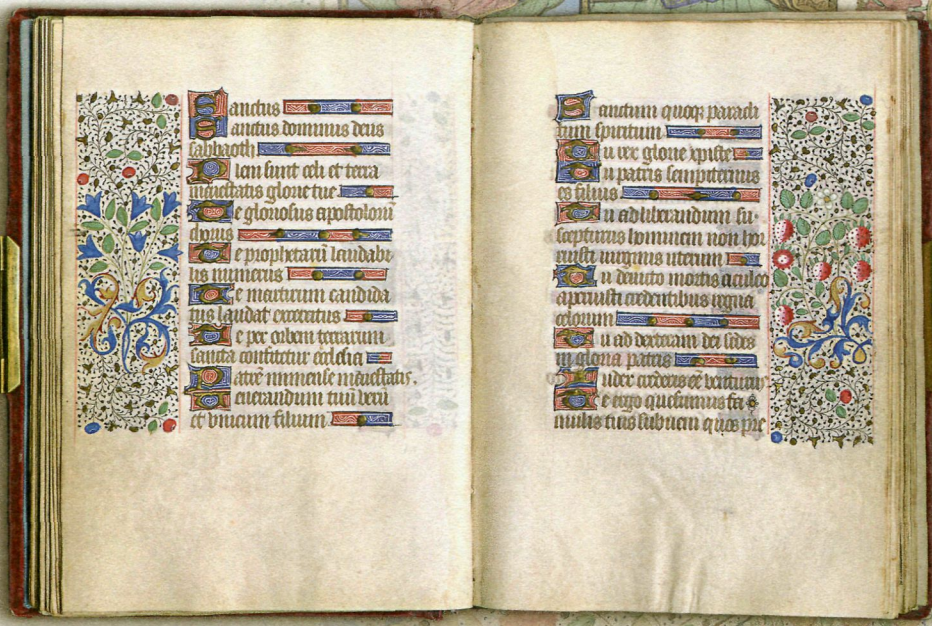 Sanctus
Sanctus dominus deus
sabbaoth
Pleni sunt celi et terra
maiestatis glorie tue
Te gloriosus apostoloru
chorus
Te prophetarū laudabi
lis numerus
Te martirum candida
tus laudat exercitus
Te per orbem terrarum
sancta confitetur ecclesia
Patrē immense maiestatis.
Venerandum tuū verū
et vnicum filium
Sanctum quoqȝ paracli
tum spiritum
Tu rex glorie xpiste
Tu patris sempiternus
es filius
Tu ad liberandum su
scepturus hominem non hor
ruisti virginis uterum
Tu deuicto mortis aculeo
aperuisti credentibus regna
celorum
Tu ad dexteram dei sedes
in gloria patris
Iudex crederis ee venturus
Te ergo quesumus fa
mulis tuis subueni quos pre